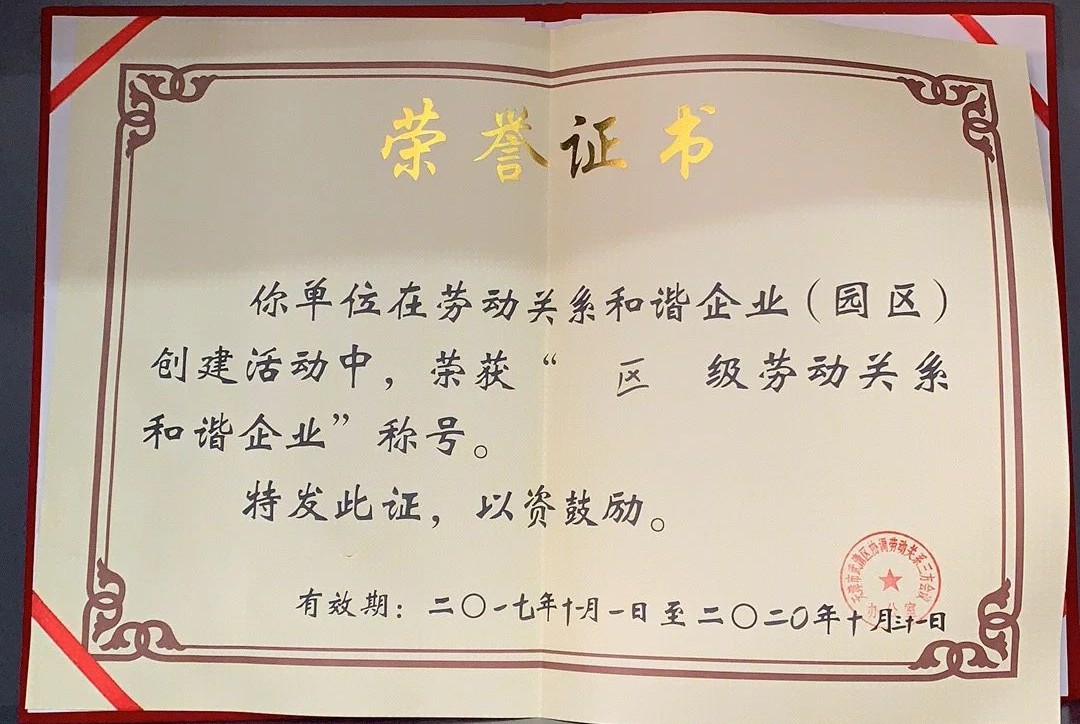 荣誉证书
你单位在劳动关系和谐企业（园区）
创建活动中，荣获“ 区 级劳动关系
和谐企业”称号。
特发此证，以资鼓励。
天津市武清区协调劳动关系三方会议
办公室
有效期：二〇一七年十一月一日至二〇二〇年十月三十一日